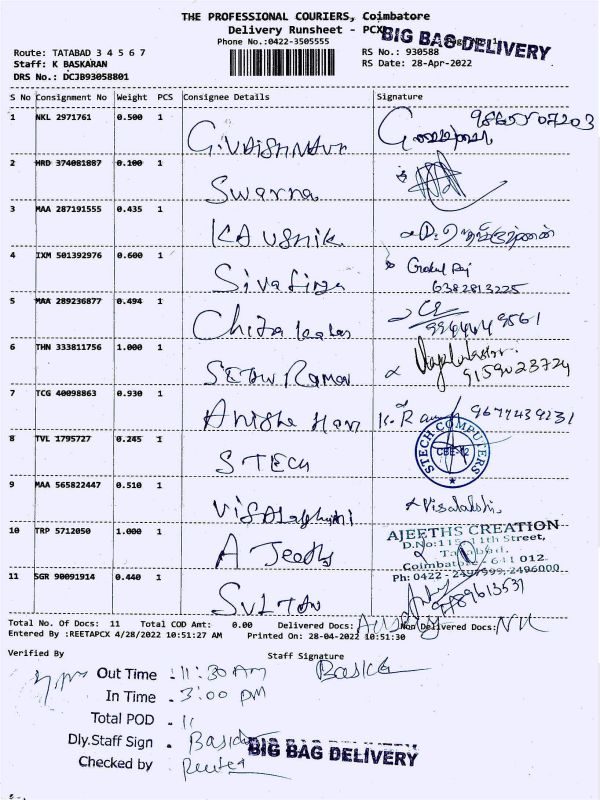 THE PROFESSIONAL COURIERS, Coimbatore
Delivery Runsheet - PCX
BIG BAG DELIVERY
Phone No.:0422-3505555
Route: TATABAD 3 4 5 6 7
RS No.: 930588
Staff: K BASKARAN
RS Date: 28-Apr-2022
DRS No.: DCJB93058801
S No Consignment No Weight PCS Consignee Details Signature
1 NKL 2971761 0.500 1 G.VAISHNAVI
2 HRD 374081887 0.100 1 Swarna
3 MAA 287191555 0.435 1 KAUSHIK
4 IXM 501392976 0.600 1 Siva Gokul Raj
6382813225
5 MAA 289236877 0.494 1 Chitra
6 THN 333811756 1.000 1 SETHU RAMAN
9159023724
7 TCG 40098863 0.930 1 Anisha K.R
8 TVL 1795727 0.245 1 STECH
STECH COMPUTERS
CBE-12
9 MAA 565822447 0.510 1 Visalakshi
10 TRP 5712050 1.000 1 A Jeeths
AJEETHS CREATION
D.No:115, 11th Street,
Tatabad,
Coimbatore - 641 012
Ph: 0422 - 2497999, 2496000
11 SGR 90091914 0.440 1 SULTAN
Total No. Of Docs: 11 Total COD Amt: 0.00 Delivered Docs: Non Delivered Docs: Nil
Entered By :REETAPCX 4/28/2022 10:51:27 AM Printed On: 28-04-2022 10:51:30
Verified By Staff Signature
Out Time . 11:30 AM
In Time . 3:00 PM
Total POD . 11
Dly.Staff Sign .
BIG BAG DELIVERY
Checked by